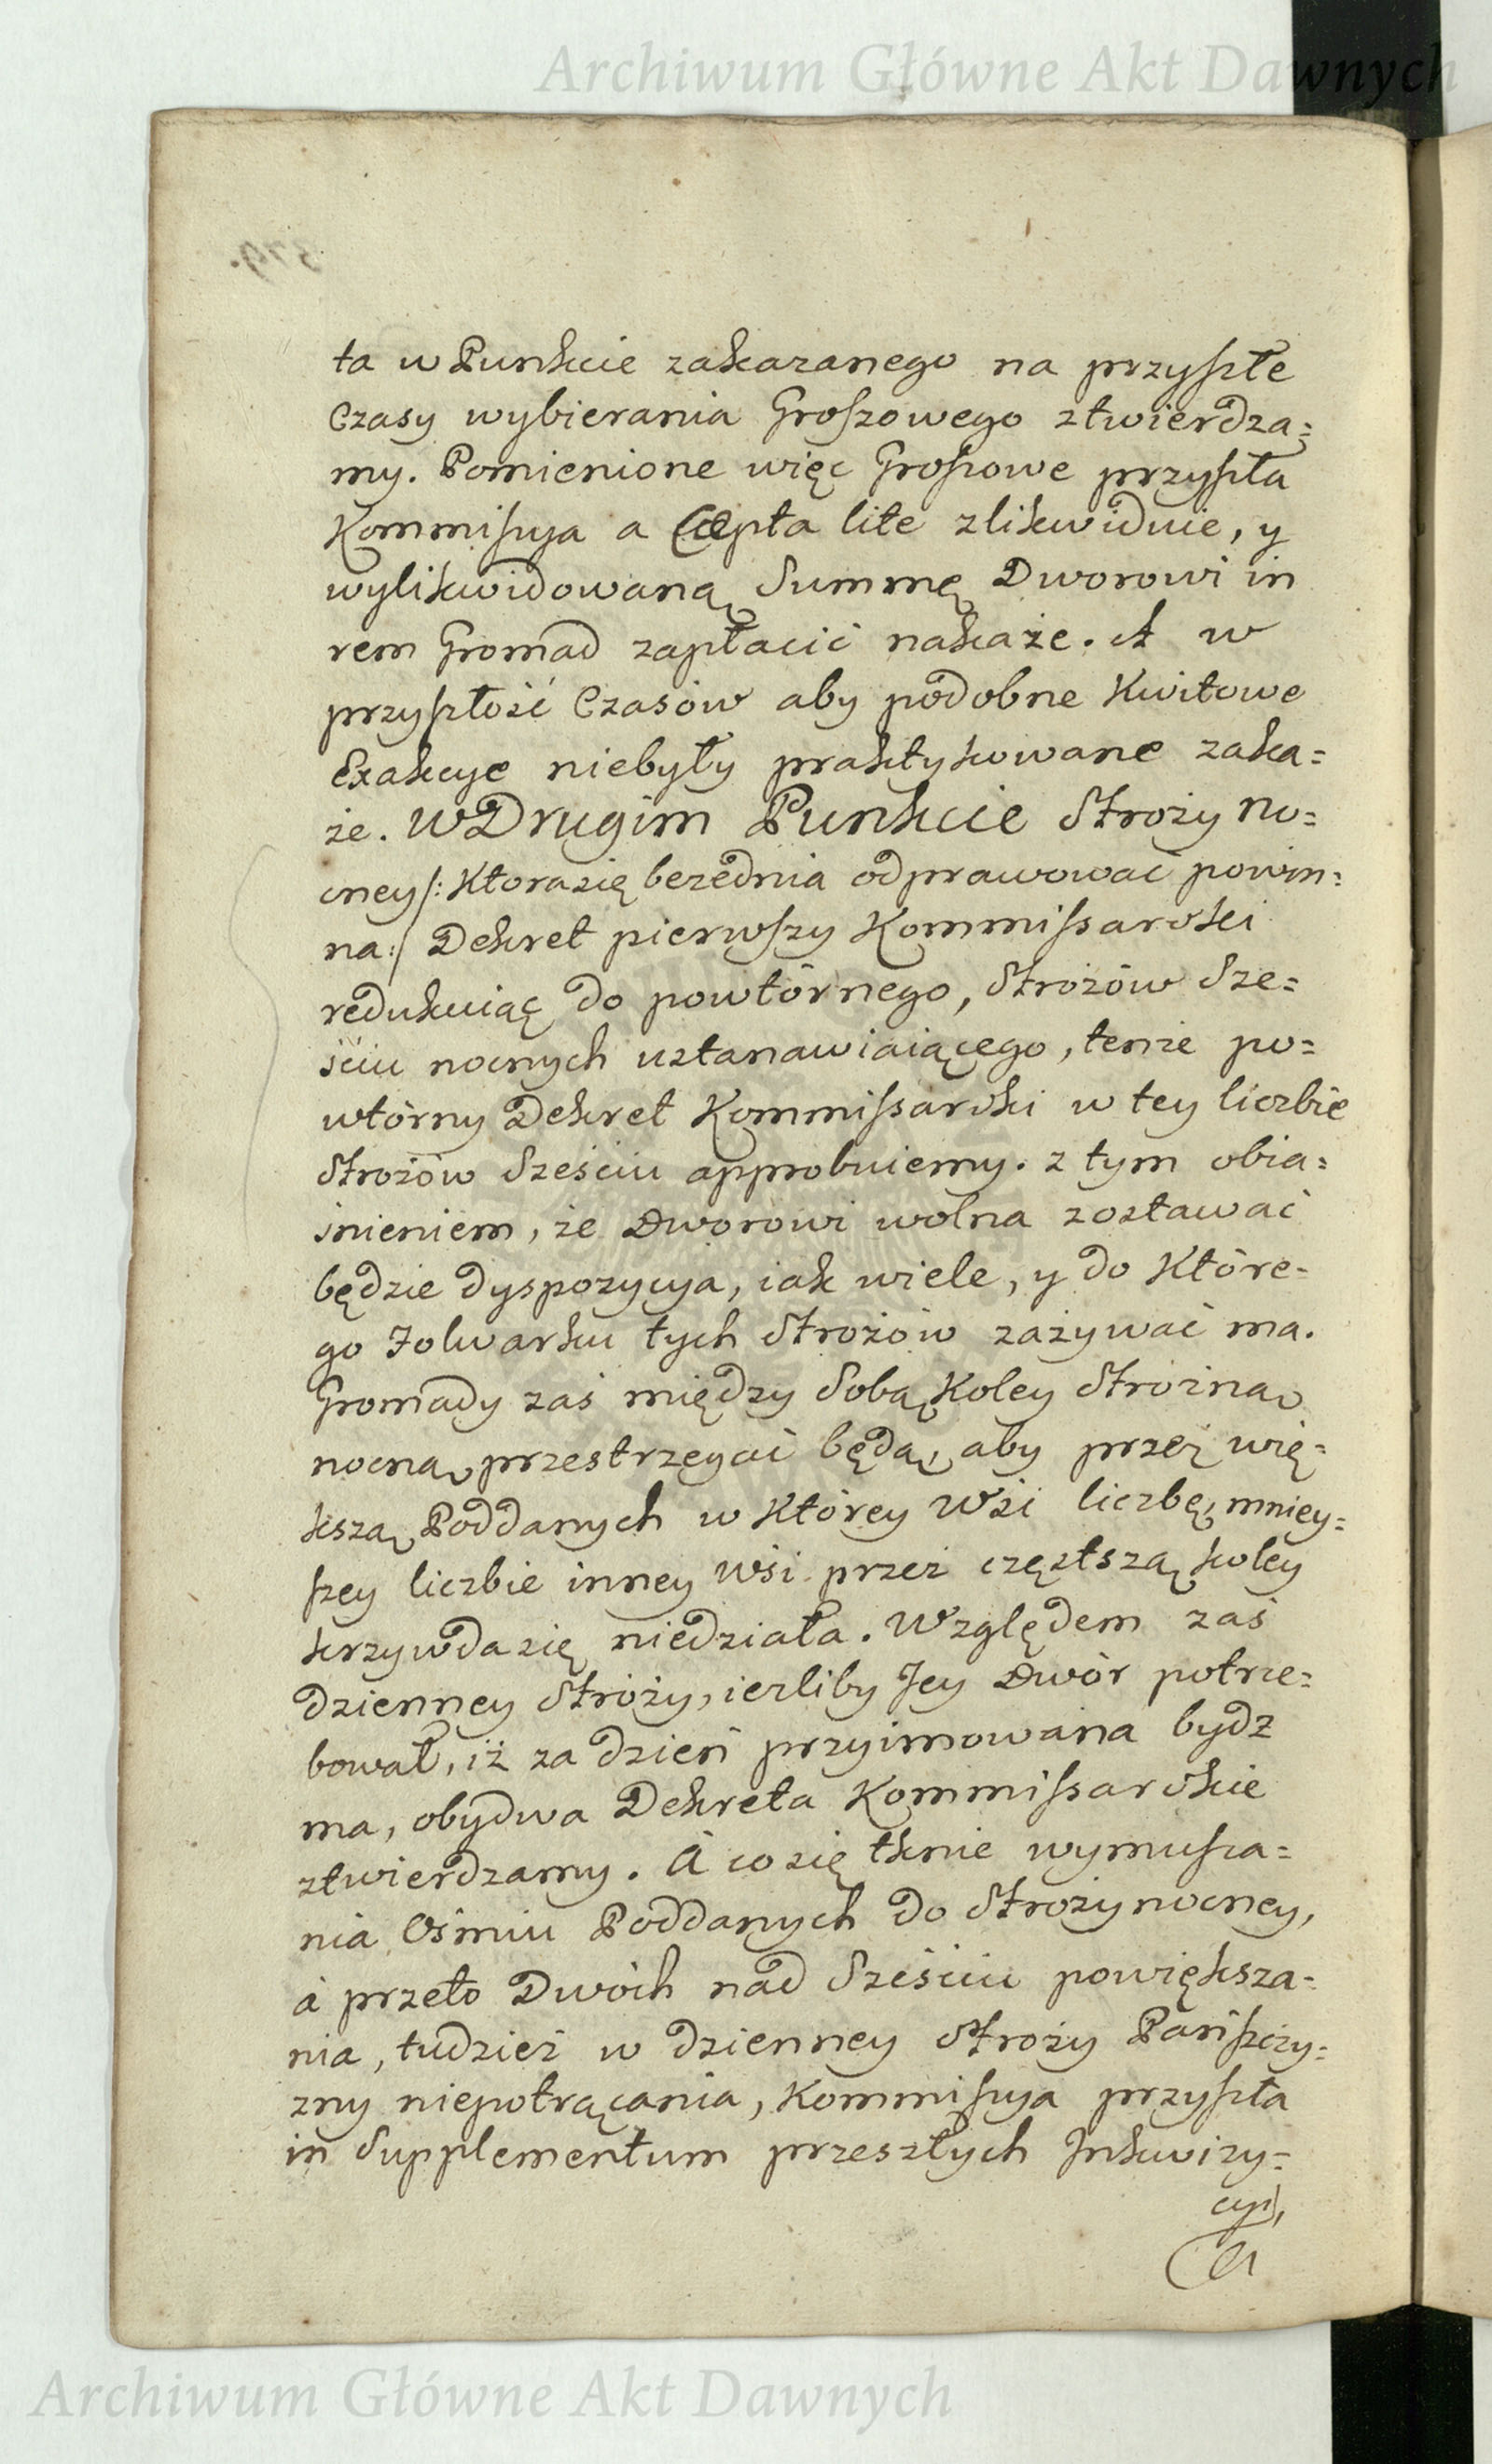 Archiwum Główne Akt Dawnych
379.
ta w Punkcie zakazanego na przyszłe
Czasy wybierania Groszowego ztwierdza=
my. Pomienione więc Groszowe przyszła
Kommissya a Cæpta lite zlikwiduie, y
wylikwidowaną Summę Dworowi in
rem Gromad zapłacić nakaże. A w
przyszłość Czasów aby podobne Kwitowe
Exakcye niebyły praktykowane zaka=
że. W Drugim Punkcie Stroży no=
cney /: Ktora się bezednia odprawować powin=
na :/ Dekret pierwszy Kommissarski
redukuiąc do powtórnego, Strożów Sze=
ściu nocnych ustanawiaiącego, tenże po=
wtórny Dekret Kommissarski w tey liczbie
Strożów Sześciu approbuiemy. z tym obia=
śnieniem, że Dworowi wolna zostawać
będzie dyspozycya, iak wiele, y do Które=
go Folwarku tych Strożów zażywać ma.
Gromady zaś między Sobą Koley Strożną
nocną przestrzegać będą, aby przez wię=
kszą Poddanych w Którey Wsi liczbę, mniey=
szey liczbie inney Wsi przez częstszą koley
krzywda się niedziała. Względem zaś
dzienney Stróży, ieżliby Jey Dwór potrze=
bował, iż za dzień przyimowana bydź
ma, obydwa Dekreta Kommissarskie
ztwierdzamy. A co się tknie wymusza=
nia Ośmiu Poddanych do Stroży nocney,
á przeto Dwóch nad Sześciu powiększa=
nia, tudzież w dzienney Stroży Pańszczy=
zny niepotrącania, Kommissya przyszła
in Supplementum przeszłych Inkwizy=
cyi,
Archiwum Główne Akt Dawnych